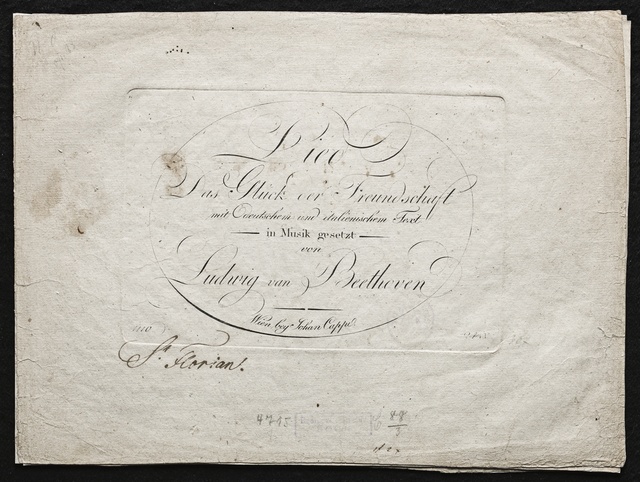 Lied
Das Glück der Freundschaft
mit Deutschem und italienischem Text
in Musik gesetzt
von
Ludwig van Beethoven
Wien bey Johan Cappi
St. Florian.
4715